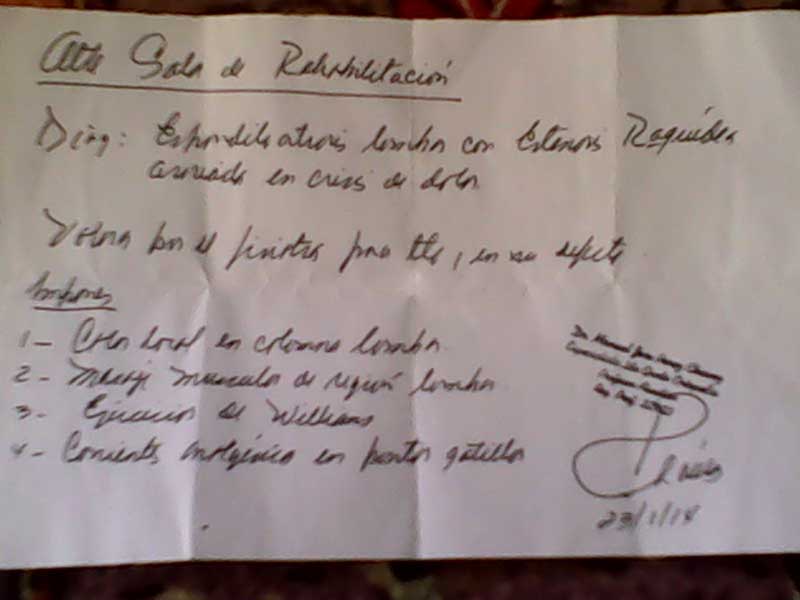 Atte Sala de Rehabilitación
Diag: Espondiloatrosis lumbar con Estenosis Raquídea
asociada en crisis de dolor
Valorar por el fisiatra para tto, en su defecto
Imponer
1- Calor local en columna lumbar
2- Masaje musculos de región lumbar
3- Ejercicios de Williams
4- Corriente analgésica en puntos gatillos
Dr. Manuel
23/1/14